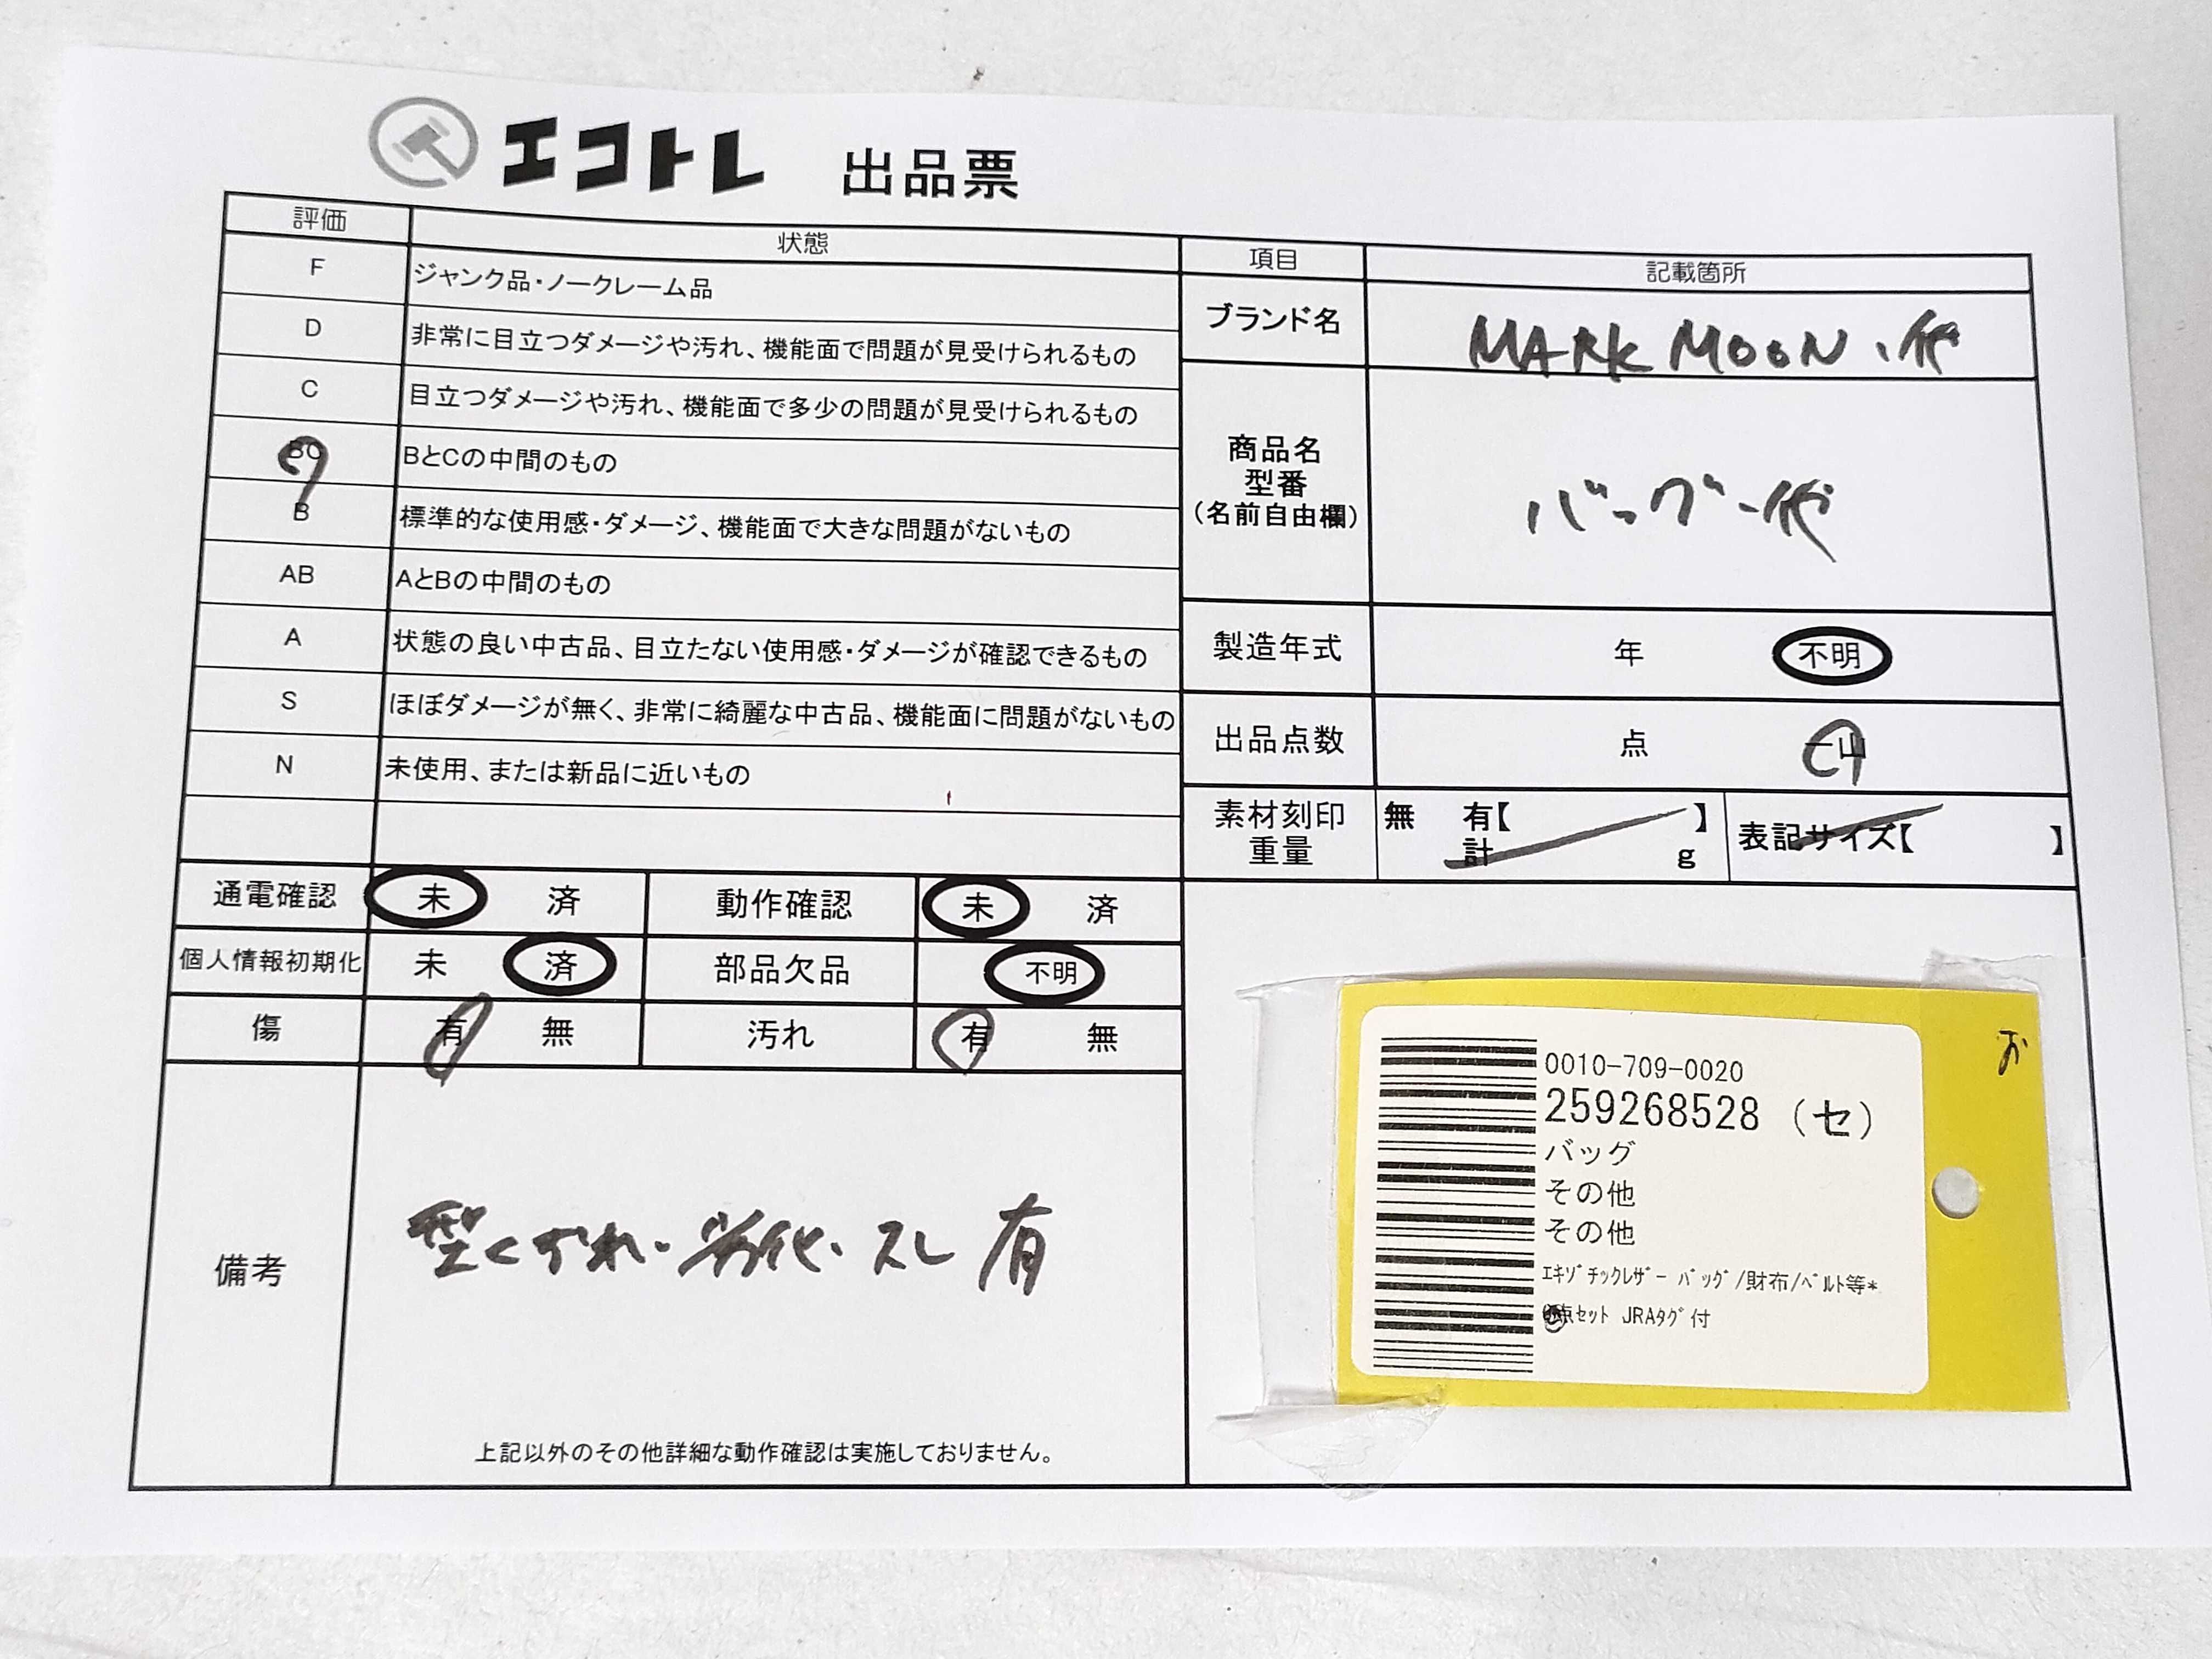 エコトレ 出品票
評価 状態
F ジャンク品・ノークレーム品
D 非常に目立つダメージや汚れ、機能面で問題が見受けられるもの
C 目立つダメージや汚れ、機能面で多少の問題が見受けられるもの
BC BとCの中間のもの
B 標準的な使用感・ダメージ、機能面で大きな問題がないもの
AB AとBの中間のもの
A 状態の良い中古品、目立たない使用感・ダメージが確認できるもの
S ほぼダメージが無く、非常に綺麗な中古品、機能面に問題がないもの
N 未使用、または新品に近いもの
通電確認 未 済 動作確認 未 済
個人情報初期化 未 済 部品欠品 不明
傷 有 無 汚れ 有 無
備考
型くずれ・劣化・スレ 有
上記以外のその他詳細な動作確認は実施しておりません。
項目 記載箇所
ブランド名 MARK MOON、他
商品名
型番
(名前自由欄)
バッグ 他
製造年式 年 不明
出品点数 点 一山
素材刻印 無 有【 】
重量 計 g
表記サイズ【 】
お
0010-709-0020
259268528 (セ)
バッグ
その他
その他
エキゾチックレザー バッグ/財布/ベルト等*
点セット JRAタグ付